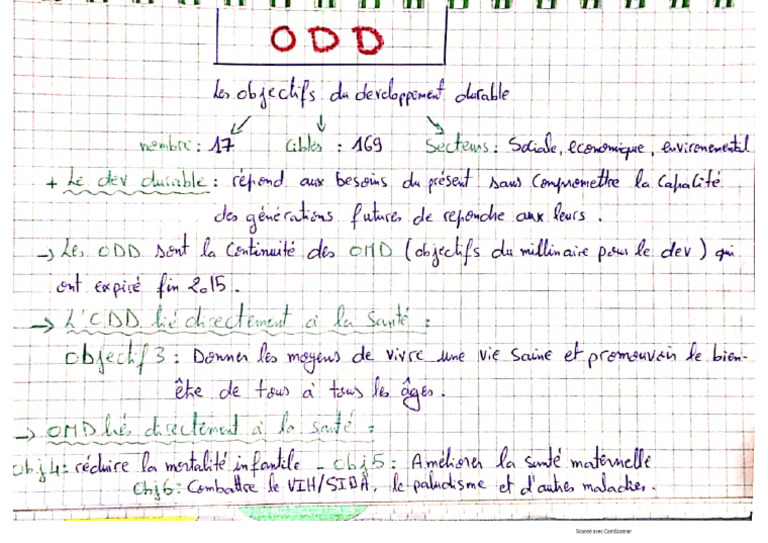 ODD
Les objectifs du developpement durable
nombre : 17 Cibles : 169 Secteurs : Sociale, economique, environemental
+ Le dev durable : répond aux besoins du présent sans Compromettre la Capacité
des générations futures de repondre aux leurs.
→ Les ODD sont la Continuité des OMD (objectifs du millinaire pour le dev) qui
ont expiré fin 2015.
→ L'ODD lié directement à la santé :
objectif 3 : Donner les moyens de vivre une vie saine et promouvoir le bien-
être de tous à tous les âges.
→ OMD liés directement à la santé :
obj4 : réduire la mortalité infantile - obj5 : Améliorer la santé maternelle
obj6 : Combattre le VIH/SIDA, le paludisme et d'autres maladies.
Scanné avec CamScanner